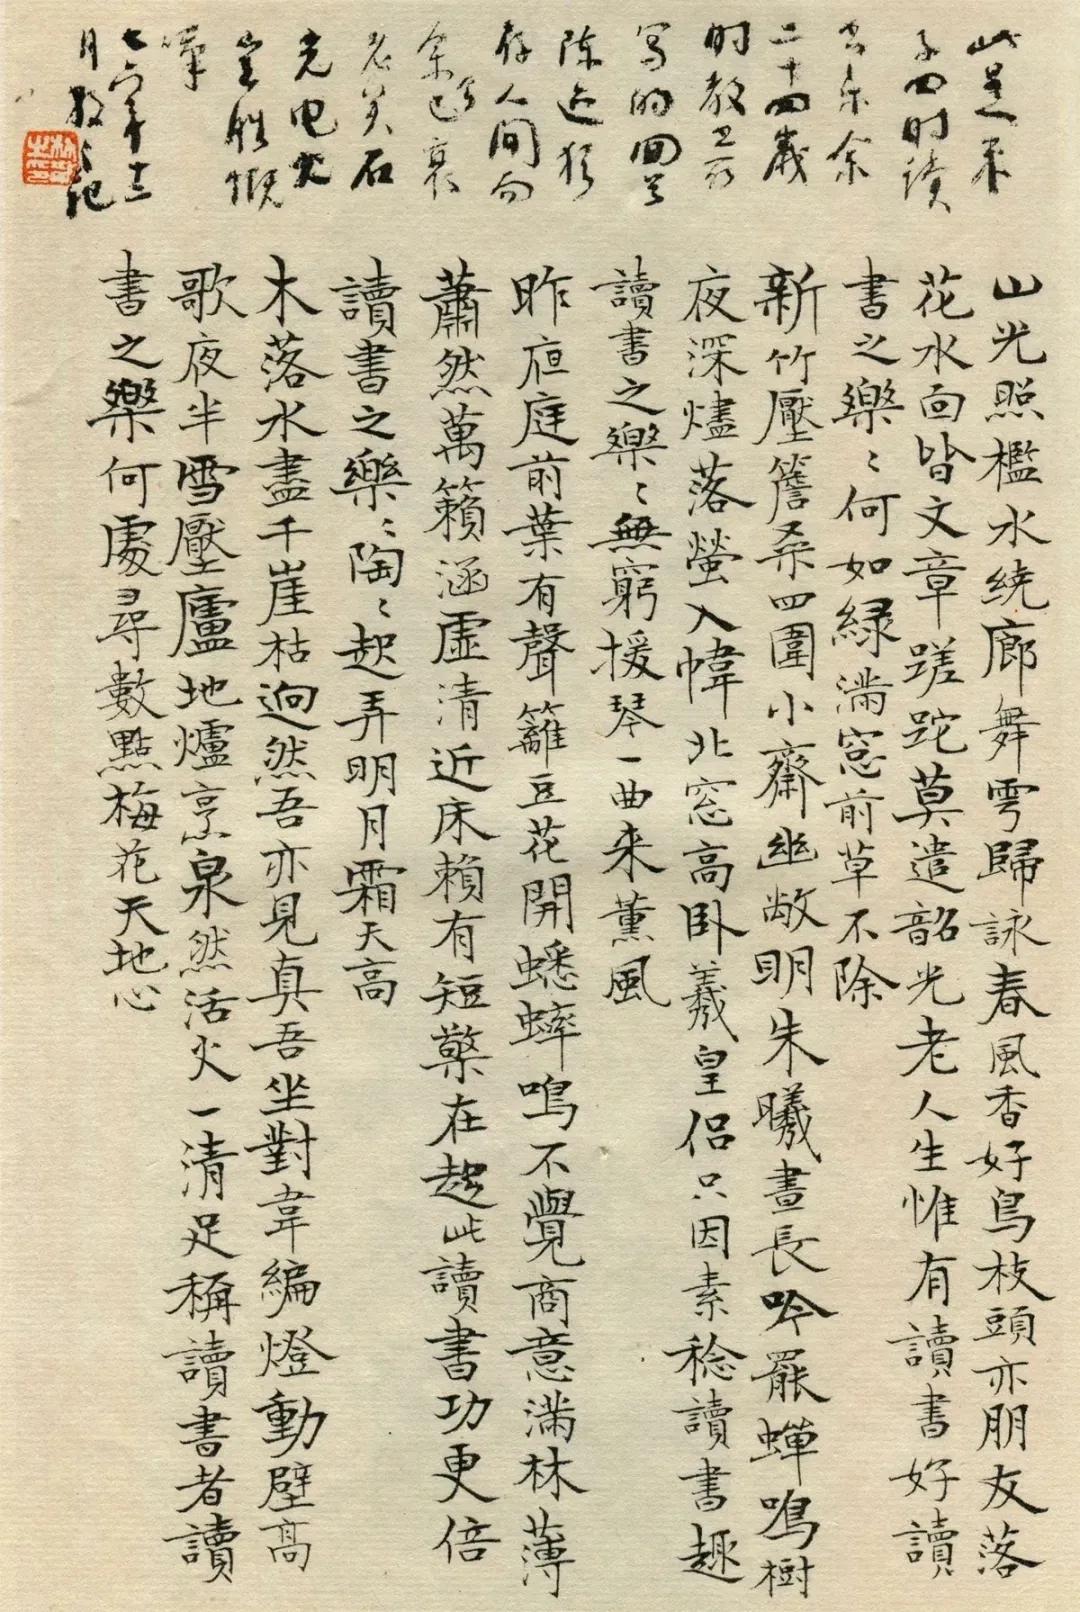 此是朱
子四时读
书乐余
二十四岁
时教
写的回首
陈迹犹
存人间而
余已衰
老矣石
光电火
岂胜慨
七六年十二
月散之记
山光照檻水繞廊舞雩歸詠春風香好鳥枝頭亦朋友落
花水面皆文章蹉跎莫遣韶光老人生惟有讀書好讀
書之樂〻何如緑滿窓前草不除
新竹壓簷桑四圍小齋幽敞明朱曦晝長吟罷蟬鳴樹
夜深燼落螢入幃北窓高臥羲皇侶只因素稔讀書趣
讀書之樂〻無窮援琴一曲来薰風
昨夜庭前葉有聲籬豆花開蟋蟀鳴不覺商意滿林薄
蕭然萬籟涵虛清近床賴有短檠在趁此讀書功更倍
讀書之樂〻陶〻起弄明月霜天高
木落水盡千崖枯迥然吾亦見真吾坐對韋編燈動壁高
歌夜半雪壓廬地爐烹泉然活火一清足稱讀書者讀
書之樂何處尋數點梅花天地心